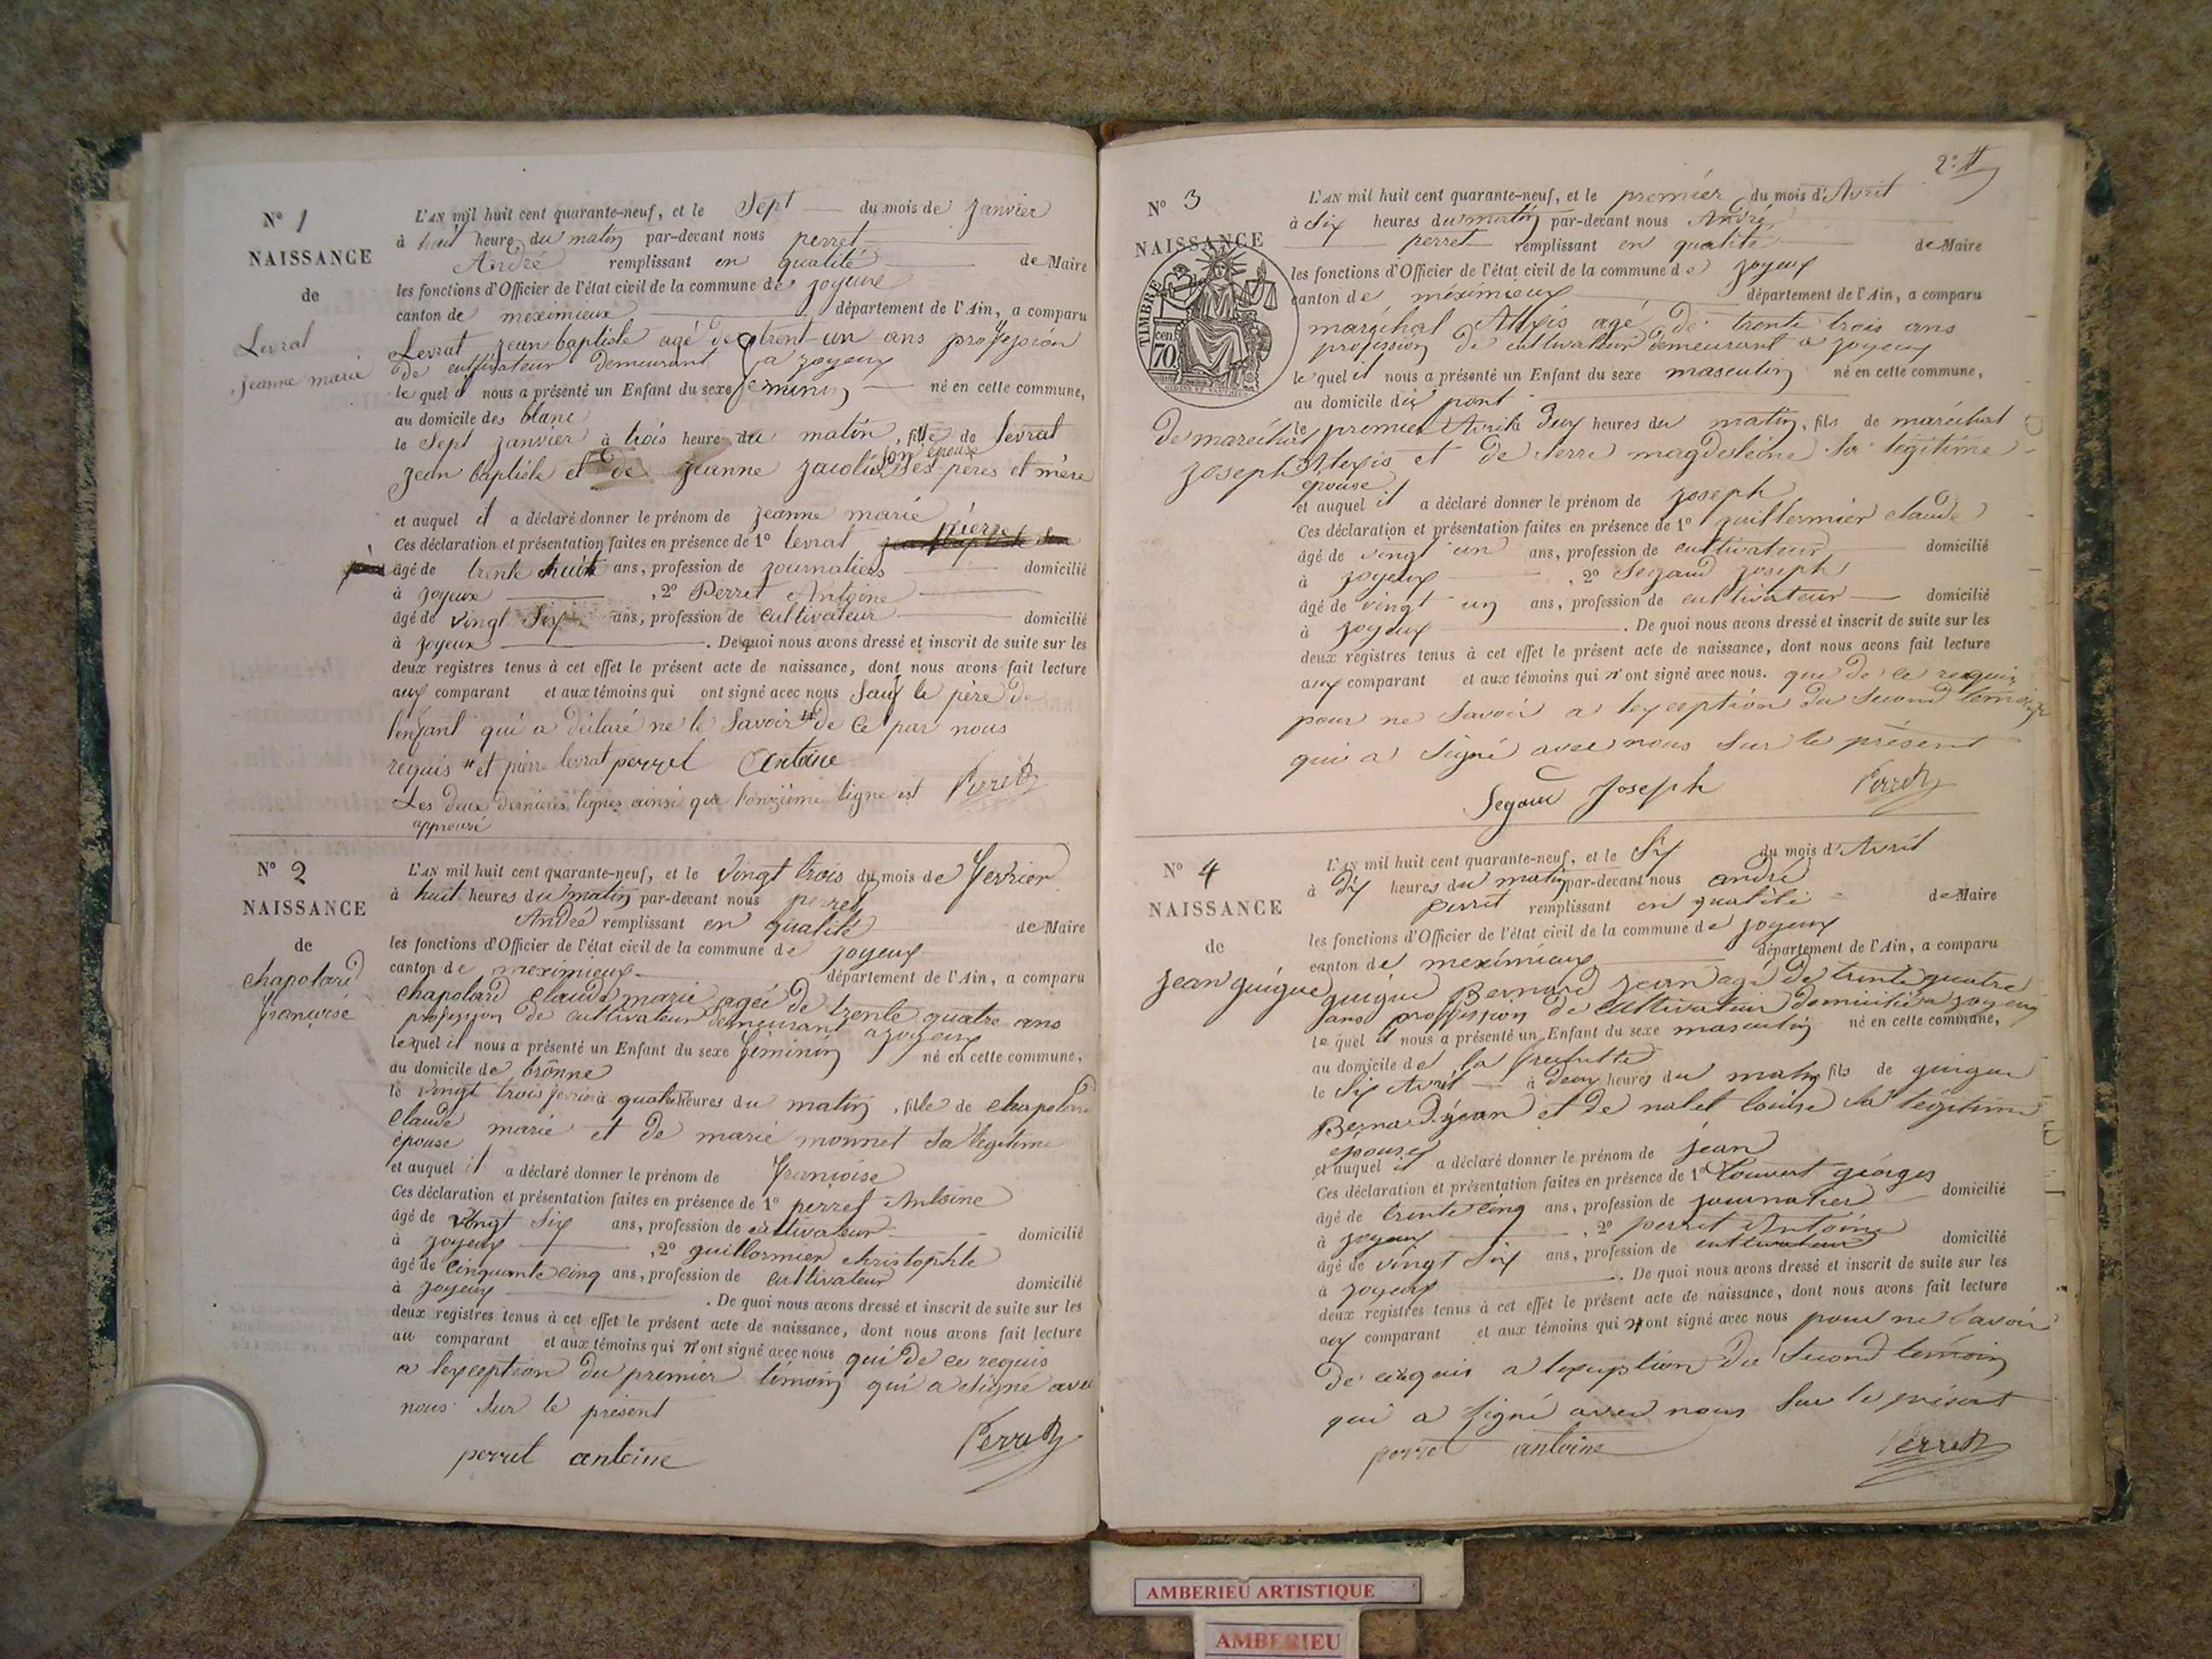 N° 1
NAISSANCE
de
Levrat
jeanne marie
L'AN mil huit cent quarante-neuf, et le Sept du mois de janvier
à huit heure du matin par-devant nous perret
André remplissant en qualité de Maire
les fonctions d'Officier de l'état civil de la commune de joyeux
canton de méximieux département de l'Ain, a comparu
Levrat jean baptiste agé de trent-un ans profession
de cultivateur demeurant a joyeux
le quel il nous a présenté un Enfant du sexe feminin né en cette commune,
au domicile des blanc
le Sept janvier à trois heure du matin, fille de levrat
jean baptiste et de jeanne son épouse ses peres et mère
et auquel il a déclaré donner le prénom de jeanne marie
Ces déclaration et présentation faites en présence de 1° levrat pierre
âgé de trente huit ans, profession de journaliers domicilié
à joyeux, 2° Perret Antoine
âgé de vingt Six ans, profession de cultivateur domicilié
à joyeux. De quoi nous avons dressé et inscrit de suite sur les
deux registres tenus à cet effet le présent acte de naissance, dont nous avons fait lecture
aux comparant et aux témoins qui ont signé avec nous Sauf le père de
l'enfant qui a déclaré ne le Savoir de ce par nous
requis # et pierre levrat perret Antoine Perret
Les deux dernieres lignes ainsi que l'onzième ligne est
approuvé
N° 2
NAISSANCE
de
chapoland
françoise
L'AN mil huit cent quarante-neuf, et le vingt trois du mois de fevrier
à huit heures du matin par-devant nous perret
André remplissant en qualité de Maire
les fonctions d'Officier de l'état civil de la commune de joyeux
canton de meximieux département de l'Ain, a comparu
chapoland claude marie agée de trente quatre ans
profession de cultivateur demeurant a joyeux
lequel il nous a présenté un Enfant du sexe féminin né en cette commune,
au domicile de brônne
le vingt trois fevrier à quatre heures du matin, fille de chapoland
claude marie et de marie monnet sa légitime
épouse
et auquel il a déclaré donner le prénom de françoise
Ces déclaration et présentation faites en présence de 1° perret Antoine
âgé de vingt Six ans, profession de cultivateur domicilié
à joyeux, 2° guillermier christophle
âgé de cinquante cinq ans, profession de cultivateur domicilié
à joyeux. De quoi nous avons dressé et inscrit de suite sur les
deux registres tenus à cet effet le présent acte de naissance, dont nous avons fait lecture
au comparant et aux témoins qui n'ont signé avec nous qui de ce requis
a lexception du premier témoin qui a signé avec
nous sur le présent
perret antoine Perret
2e
N° 3
NAISSANCE
TIMBRE
70 cent
de maréchal
joseph
L'AN mil huit cent quarante-neuf, et le premier du mois d'Avril
à Six heures du matin par-devant nous André
perret remplissant en qualité de Maire
les fonctions d'Officier de l'état civil de la commune de joyeux
canton de méximieux département de l'Ain, a comparu
maréchal Alexis agé de trente trois ans
profession de cultivateur demeurant a joyeux
le quel il nous a présenté un Enfant du sexe masculin né en cette commune,
au domicile du pont
le premier Avril à deux heures du matin, fils de maréchal
Alexis et de Serre magdeleine sa légitime
épouse
et auquel il a déclaré donner le prénom de joseph
Ces déclaration et présentation faites en présence de 1° guillermier claude
âgé de vingt un ans, profession de cultivateur domicilié
à joyeux, 2° Segaud joseph
âgé de vingt un ans, profession de cultivateur domicilié
à joyeux. De quoi nous avons dressé et inscrit de suite sur les
deux registres tenus à cet effet le présent acte de naissance, dont nous avons fait lecture
aux comparant et aux témoins qui n'ont signé avec nous. que de ce requis
pour ne Savoir a lexception du Second temoin
qui a Signé avec nous Sur le présent
Segaud Joseph Perret
N° 4
NAISSANCE
de
jean guigue
L'AN mil huit cent quarante-neuf, et le Six du mois d'Avril
à dix heures du matin par-devant nous andré
perret remplissant en qualité de Maire
les fonctions d'Officier de l'état civil de la commune de joyeux
canton de meximieux département de l'Ain, a comparu
guigue Bernard jean agé de trente quatre
ans proffession de cultivateur domicilié a joyeux
le quel il nous a présenté un Enfant du sexe masculin né en cette commune,
au domicile de la
le Six Avril à deux heures du matin fils de guigue
Bernard jean et de nalet louise sa légitime
épouse
et auquel il a déclaré donner le prénom de jean
Ces déclaration et présentation faites en présence de 1° Louvert géorges
âgé de trente cinq ans, profession de journalier domicilié
à joyeux, 2° perret Antoine
âgé de vingt Six ans, profession de cultivateur domicilié
à joyeux. De quoi nous avons dressé et inscrit de suite sur les
deux registres tenus à cet effet le présent acte de naissance, dont nous avons fait lecture
aux comparant et aux témoins qui n'ont signé avec nous pour ne Savoir
de ce requis a lexception du Second temoin
qui a Signé avec nous Sur le présent
perret antoine Perret
AMBERIEU ARTISTIQUE
AMBERIEU